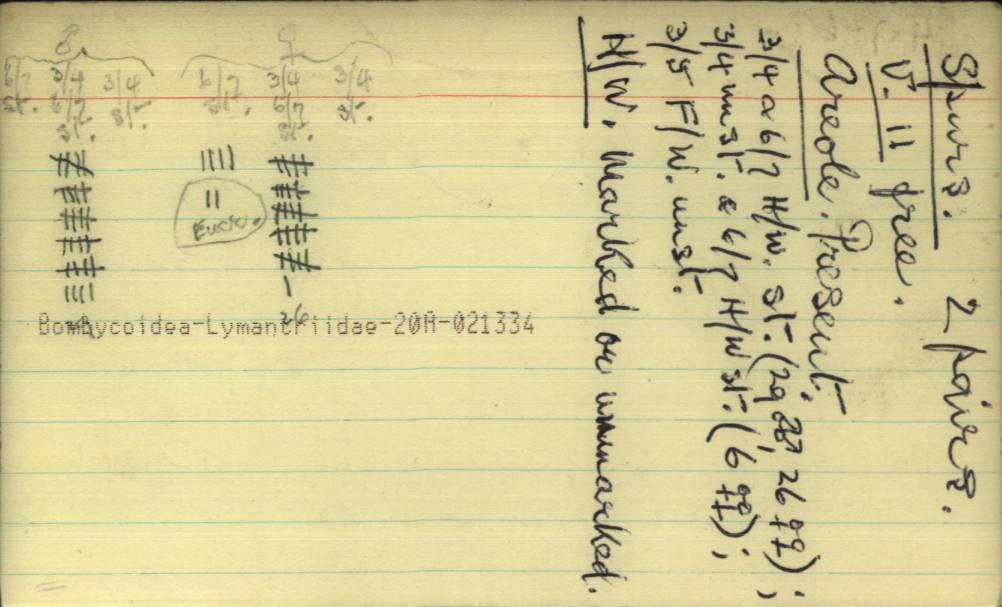 Spurs. 2 pairs.
V. 11 free.
Areole. Present.
3/4 & 6/7 H/W. st. (29 ♂♂, 26 ♀♀);
3/4 unst. & 6/7 H/W st. (6 ♀♀);
3/5 F/W. unst.
H/W. Marked or unmarked.
♂. ♀
6/7 st. 3/4 6/7 st. 3/4 st. 6/7 st. 3/4 6/7 st. 3/4 st.
26
Bombycoidea-Lymantriidae-20A-021334